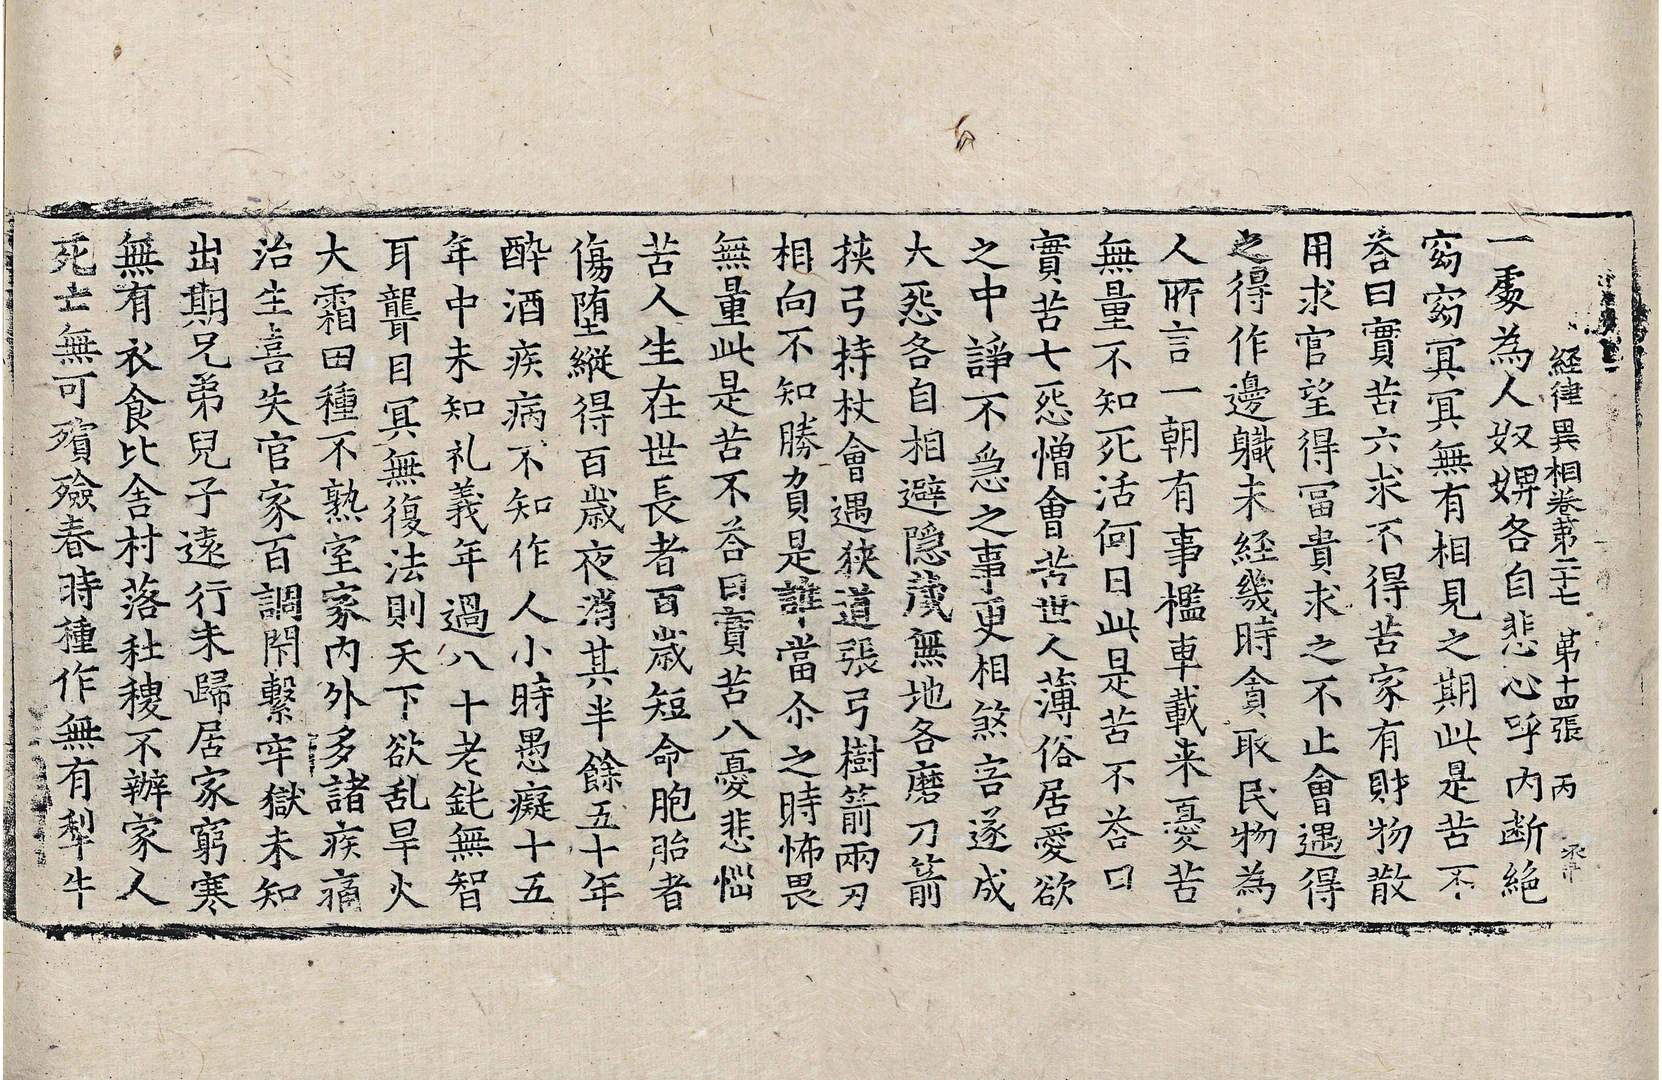 経律異相卷苐二十七 苐十四張 丙
一處為人奴婢各自悲心呼內断絶
窈窈冥冥無有相見之期此是苦不
荅曰實苦六求不得苦家有財物散
用求官望得冨貴求之不止會遇得
之得作邊軄未経幾時貪取民物為
人所言一朝有事檻車載来憂苦
無量不知死活何日此是苦不荅曰
實苦七怨憎會苦世人薄俗居愛欲
之中諍不急之事更相煞害遂成
大怨各自相避隠藏無地各磨刀箭
挾弓持杖會遇狹道張弓樹箭兩刃
相向不知勝負是誰當尒之時怖畏
無量此是苦不荅曰實苦八憂悲惱
苦人生在世長者百歲短命胞胎者
傷堕縱得百歲夜消其半餘五十年
酔酒疾病不知作人小時愚癡十五
年中未知礼義年過八十老鈍無智
耳聾目冥無復法則天下欲乱旱火
大霜田種不熟室家內外多諸疾痛
治生喜失官家百調閇繫牢獄未知
出期兄弟兒子遠行未歸居家窮寒
無有衣食比舍村落社稷不辦家人
死亡無可殯殮春時種作無有犁牛